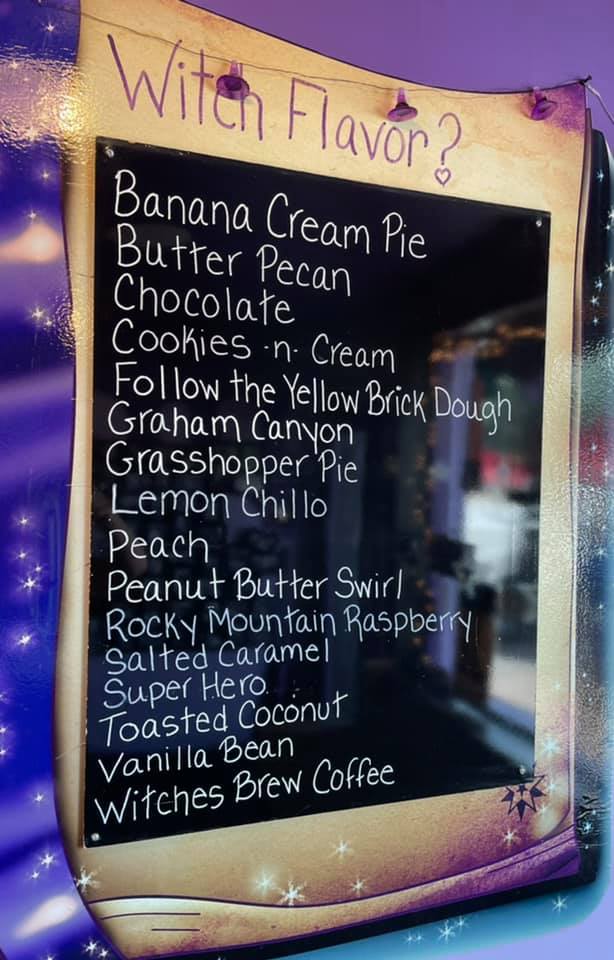 Witch Flavor?
Banana Cream Pie
Butter Pecan
Chocolate
Cookies -n- Cream
Follow the Yellow Brick Dough
Graham Canyon
Grasshopper Pie
Lemon Chillo
Peach
Peanut Butter Swirl
Rocky Mountain Raspberry
Salted Caramel
Super Hero
Toasted Coconut
Vanilla Bean
Witches Brew Coffee